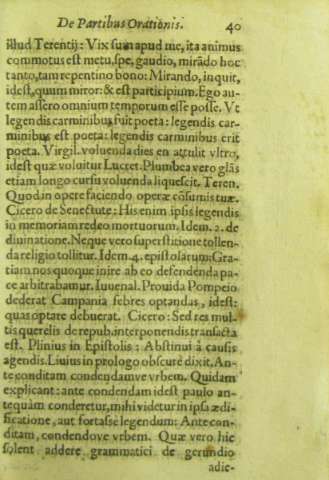 De Partibus Orationis. 40
illud Terentij: Vix sum apud me, ita animus
commotus est metu, spe, gaudio, mirãdo hoc
tanto, tam repentino bono: Mirando, inquit,
idest, quum miror: & est participium. Ego au-
tem assero omnium temporum esse posse. Vt
legendis carminibus fuit poeta: legendis car-
minibus est poeta: legendis carminibus erit
poeta. Virgil. voluenda dies en attulit vltro,
idest quæ voluitur Lucret. Plumbea vero glãs
etiam longo cursu voluenda liquescit. Teren.
Quod in opere faciendo operæ cõsumis tuæ.
Cicero de Senectute: His enim ipsis legendis
in memoriam redeo mortuorum. Idem. 2. de
diuinatione. Neque vero superstitione tollen-
da religio tollitur. Idem. 4. epistolarum: Gra-
tiam nos quoque inire ab eo defendenda pa-
ce arbitrabamur. Iuuenal. Prouida Pompeio
dederat Campania febres optandas, idest:
quas optare debuerat. Cicero: Sed res mul-
tis querelis de repub. interponendis transacta
est. Plinius in Epistolis: Abstinui à causis
agendis. Liuius in prologo obscurè dixit, An-
te conditam condendamve vrbem. Quidam
explicant: ante condendam idest paulo an-
tequàm conderetur, mihi videtur in ipsa ædi-
ficatione, aut fortasse legendum: Ante con-
ditam, condendove vrbem. Quæ vero hic
solent addere grammatici de gerundio
adie-